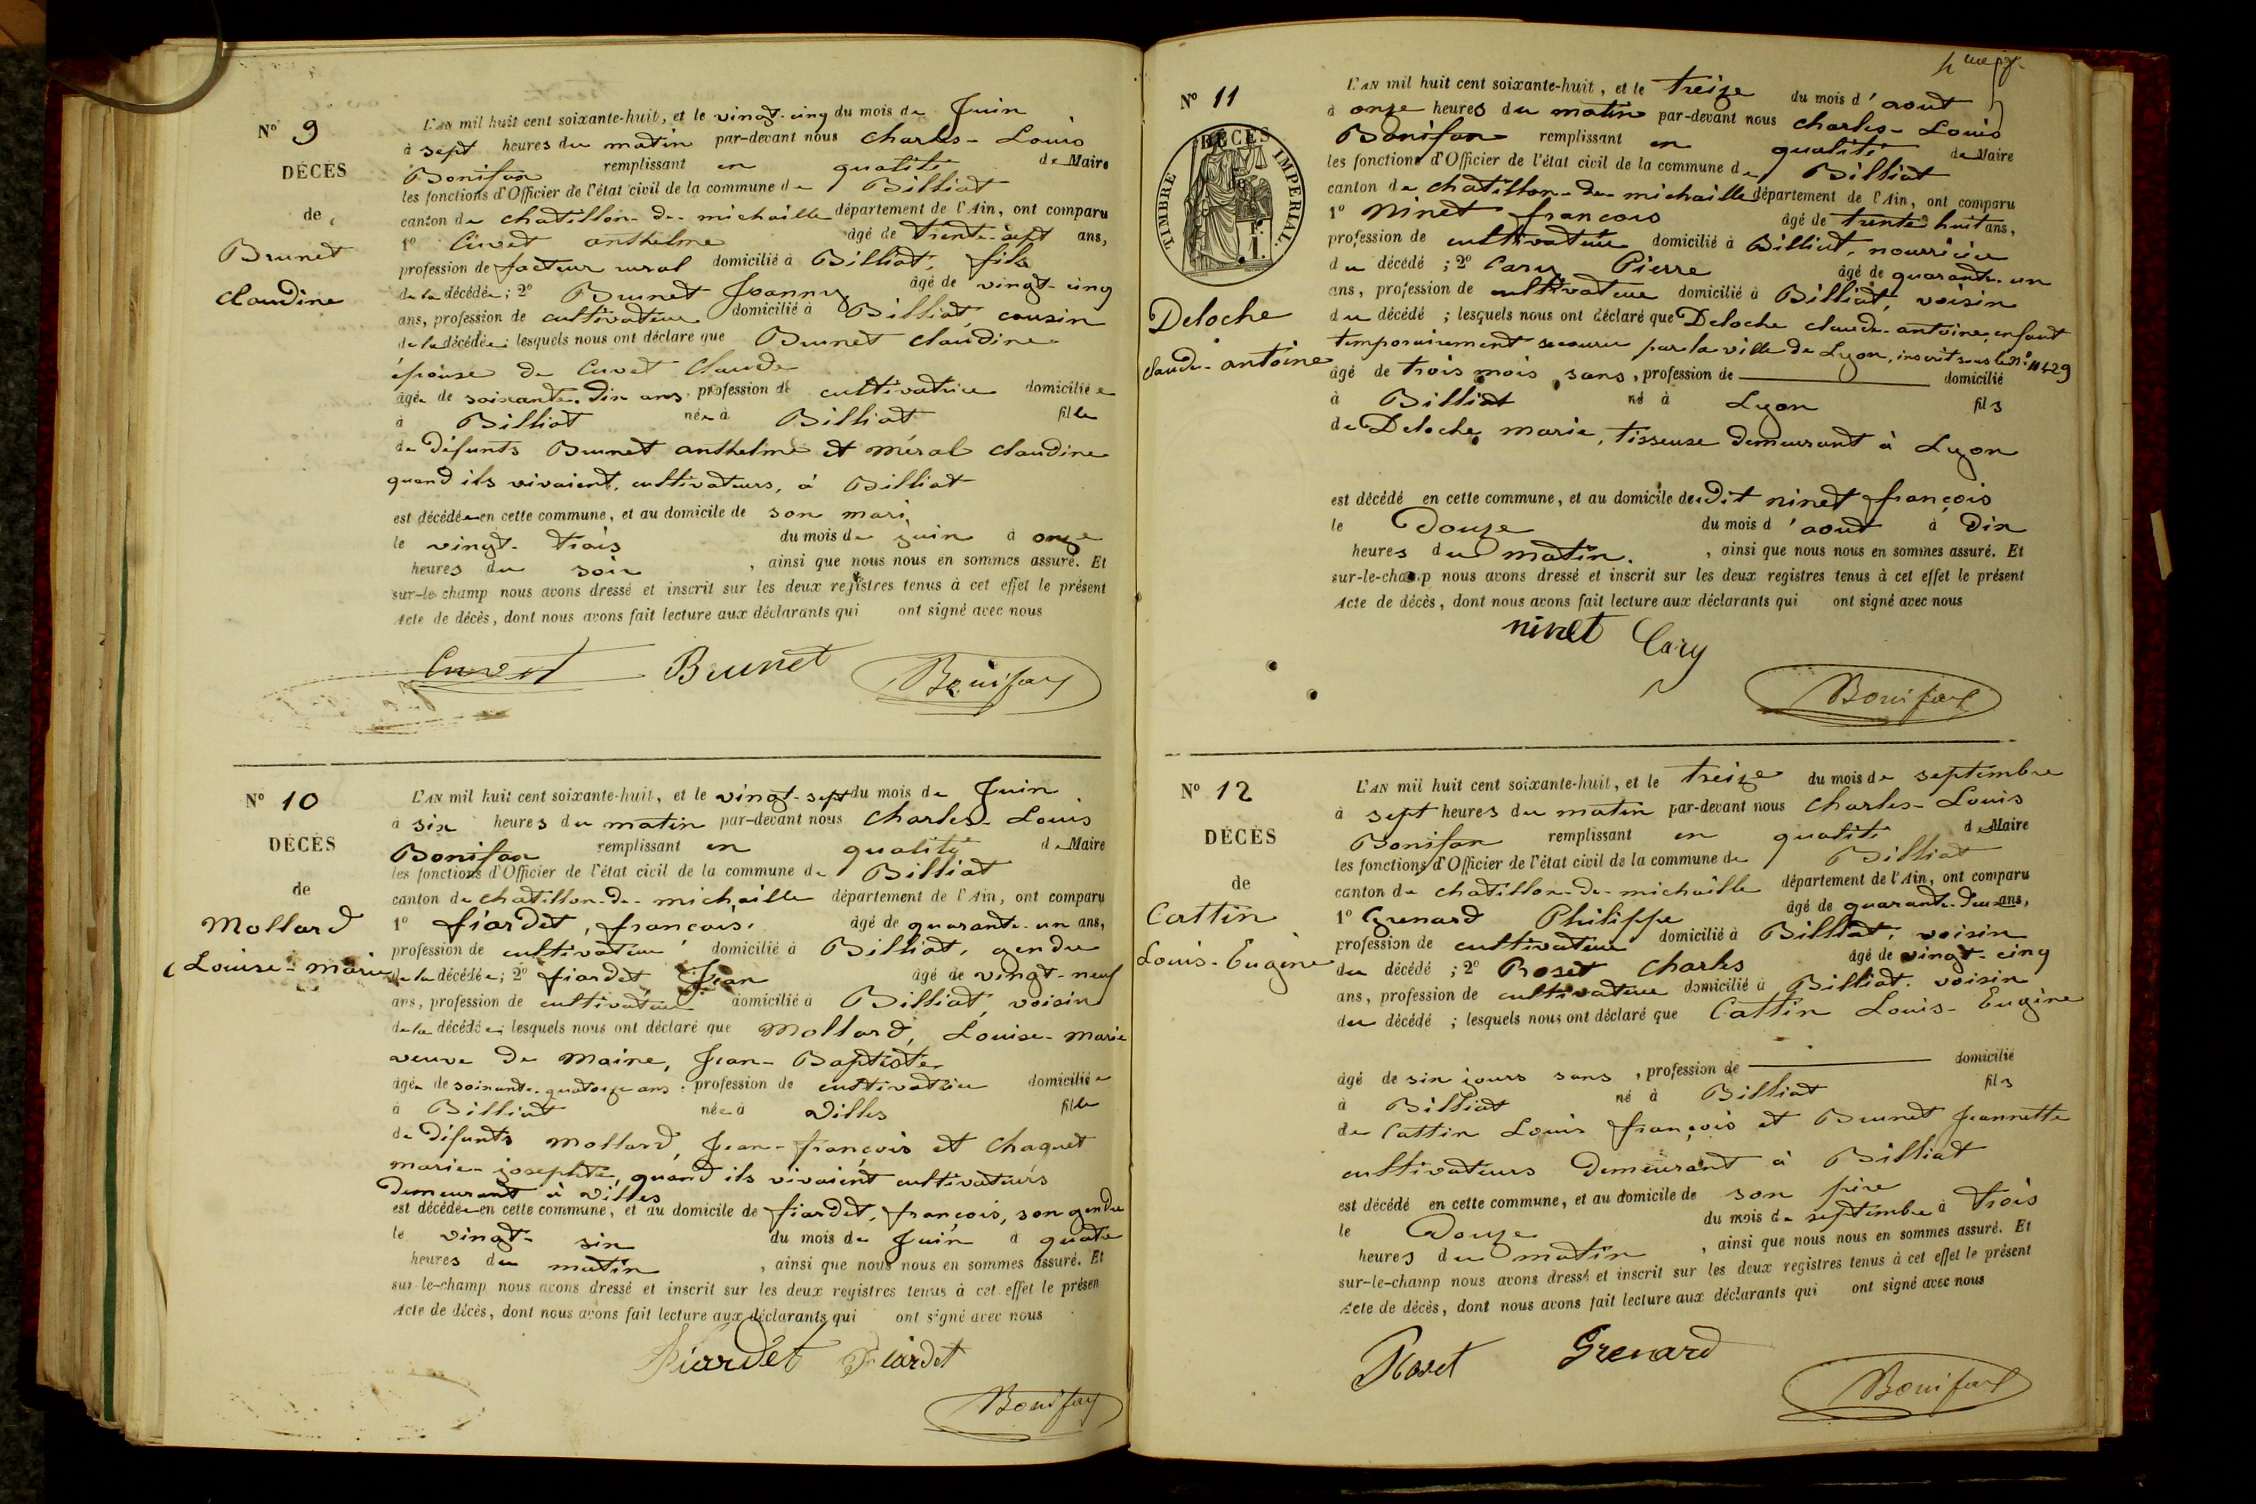 N° 9
DÉCÈS
de
Brunet
claudine
L'AN mil huit cent soixante-huit, et le vingt-cinq du mois de Juin
à sept heures du matin par-devant nous charles-Louis
Bonifax remplissant en qualité de Maire
les fonctions d'Officier de l'état civil de la commune de Billiat
canton de chatillon-de-michaille département de l'Ain, ont comparu
1° Cuvet anthelme âgé de trente-sept ans,
profession de facteur rural domicilié à Billiat, fils
de la décédée; 2° Brunet Joanny âgé de vingt-cinq
ans, profession de cultivateur domicilié à Billiat, cousin
de la décédée; lesquels nous ont déclaré que Brunet claudine
épouse de Cuvet Claude
âgée de soixante-dix ans, profession de cultivatrice domiciliée
à Billiat née à Billiat fille
de défunts Brunet anthelme et méral claudine
quand ils vivaient, cultivateurs, à Billiat
est décédée en cette commune, et au domicile de son mari,
le vingt-trois du mois de juin à onze
heures du soir, ainsi que nous nous en sommes assuré. Et
sur-le-champ nous avons dressé et inscrit sur les deux registres tenus à cet effet le présent
Acte de décès, dont nous avons fait lecture aux déclarants qui ont signé avec nous
Cuvet Brunet Bonifax
N° 10
DÉCÈS
de
Mollard
Louise-marie
L'AN mil huit cent soixante-huit, et le vingt-sept du mois de Juin
à six heures du matin par-devant nous charles-Louis
Bonifax remplissant en qualité de Maire
les fonctions d'Officier de l'état civil de la commune de Billiat
canton de chatillon-de-michaille département de l'Ain, ont comparu
1° fiardet, françois, âgé de quarante-un ans,
profession de cultivateur domicilié à Billiat, gendre
de la décédée; 2° fiardet Jean âgé de vingt-neuf
ans, profession de cultivateur domicilié à Billiat, voisin
de la décédée; lesquels nous ont déclaré que Mollard, Louise-marie
veuve de Maine, Jean-Baptiste
âgée de soixante-quatorze ans, profession de cultivatrice domiciliée
à Billiat née à Villes fille
de défunts Mollard, Jean-françois et Chaquet
marie-josephte, quand ils vivaient cultivateurs
demeurant à Villes
est décédée en cette commune, et au domicile de fiardet, françois, son gendre
le vingt-six du mois de Juin à quatre
heures du matin, ainsi que nous nous en sommes assuré. Et
sur-le-champ nous avons dressé et inscrit sur les deux registres tenus à cet effet le présen
Acte de décès, dont nous avons fait lecture aux déclarants qui ont signé avec nous
fiardet fiardet
Bonifax
N° 11
TIMBRE IMPÉRIAL
DÉCÈS
Deloche
claude-antoine
L'AN mil huit cent soixante-huit, et le treize du mois d'aout
à onze heures du matin par-devant nous charles-Louis
Bonifax remplissant en qualité de Maire
les fonctions d'Officier de l'état civil de la commune de Billiat
canton de chatillon-de-michaille département de l'Ain, ont comparu
1° Ninet françois âgé de trente huit ans,
profession de cultivateur domicilié à Billiat, nourricier
du décédé; 2° Cary Pierre âgé de quarante-un
ans, profession de cultivateur domicilié à Billiat, voisin
du décédé; lesquels nous ont déclaré que Deloche claude-antoine, enfant
temporairement secouru par la ville de Lyon, inscrit sous le N° 11429
âgé de trois mois, sans, profession de domicilié
à Billiat né à Lyon fils
de Deloche, marie, tisseuse demeurant à Lyon
est décédé en cette commune, et au domicile du dit ninet françois
le Douze du mois d'aout à Dix
heures du matin, ainsi que nous nous en sommes assuré. Et
sur-le-champ nous avons dressé et inscrit sur les deux registres tenus à cet effet le présent
Acte de décès, dont nous avons fait lecture aux déclarants qui ont signé avec nous
ninet Cary
Bonifax
N° 12
DÉCÈS
de
Cattin
Louis-Eugène
L'AN mil huit cent soixante-huit, et le treize du mois de septembre
à sept heures du matin par-devant nous charles-Louis
Bonifax remplissant en qualité de Maire
les fonctions d'Officier de l'état civil de la commune de Billiat
canton de chatillon-de-michaille département de l'Ain, ont comparu
1° Grenard Philippe âgé de quarante-deux ans,
profession de cultivateur domicilié à Billiat, voisin
du décédé; 2° Roset Charles âgé de vingt-cinq
ans, profession de cultivateur domicilié à Billiat, voisin
du décédé; lesquels nous ont déclaré que Cattin Louis-Eugène
âgé de six jours sans, profession de domicilié
à Billiat né à Billiat fils
de Cattin Louis françois et Brunet Jeannette
cultivateurs demeurant à Billiat
est décédé en cette commune, et au domicile de son père
le Douze du mois de septembre à trois
heures du matin, ainsi que nous nous en sommes assuré. Et
sur-le-champ nous avons dressé et inscrit sur les deux registres tenus à cet effet le présent
Acte de décès, dont nous avons fait lecture aux déclarants qui ont signé avec nous
Roset Grenard
Bonifax